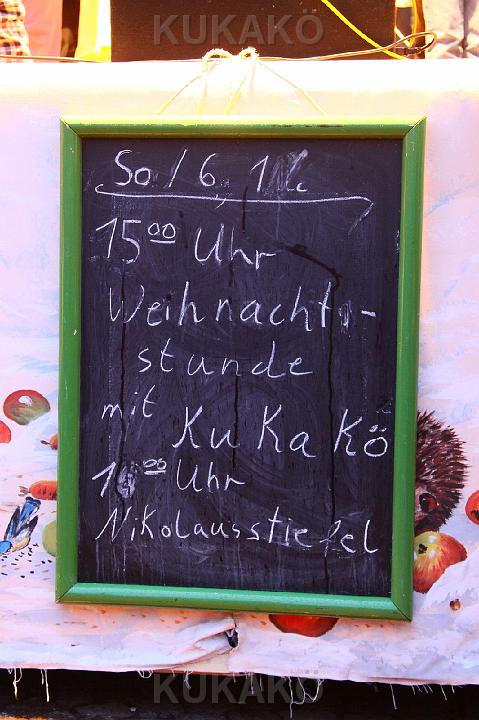 KUKAKÖ
So / 6. 12.
15⁰⁰ Uhr
Weihnachts-
stunde
mit KuKaKö
16⁰⁰ Uhr
Nikolausstiefel
KUKAKÖ